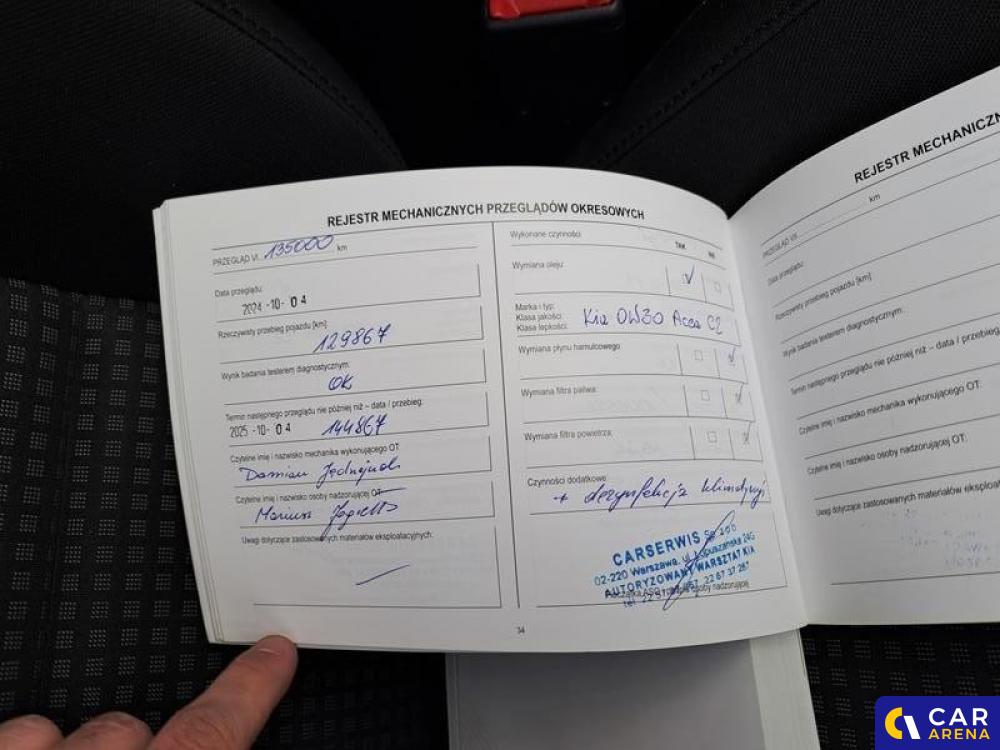 REJESTR MECHANICZNYCH PRZEGLĄDÓW OKRESOWYCH
PRZEGLĄD VI 135000 km
Data przeglądu:
2024 -10- 04
Rzeczywisty przebieg pojazdu [km]:
129867
Wynik badania testerem diagnostycznym:
OK
Termin następnego przeglądu nie później niż – data / przebieg:
2025 -10- 04 144867
Czytelne imię i nazwisko mechanika wykonującego OT:
Damian
Czytelne imię i nazwisko osoby nadzorującej OT
Mariusz
Uwagi dotyczące zastosowanych materiałów eksploatacyjnych:
Wykonane czynności:
TAK
NIE
Wymiana oleju:
Marka i typ:
Klasa jakości:
Klasa lepkości:
Kia 0W30 Acea C2
Wymiana płynu hamulcowego
Wymiana filtra paliwa:
Wymiana filtra powietrza:
Czynności dodatkowe:
+ dezynfekcja klimatyzacji
CARSERWIS Sp. z o.o.
02-220 Warszawa, ul. Łopuszańska 24G
AUTORYZOWANY WARSZTAT KIA
osoby nadzorującej
34
REJESTR MECHANICZN
PRZEGLĄD VII km
Data przeglądu:
Rzeczywisty przebieg pojazdu [km]:
Wynik badania testerem diagnostycznym:
Termin następnego przeglądu nie później niż – data / przebieg
Czytelne imię i nazwisko mechanika wykonującego OT:
Czytelne imię i nazwisko osoby nadzorującej OT:
Uwagi dotyczące zastosowanych materiałów
CAR
ARENA